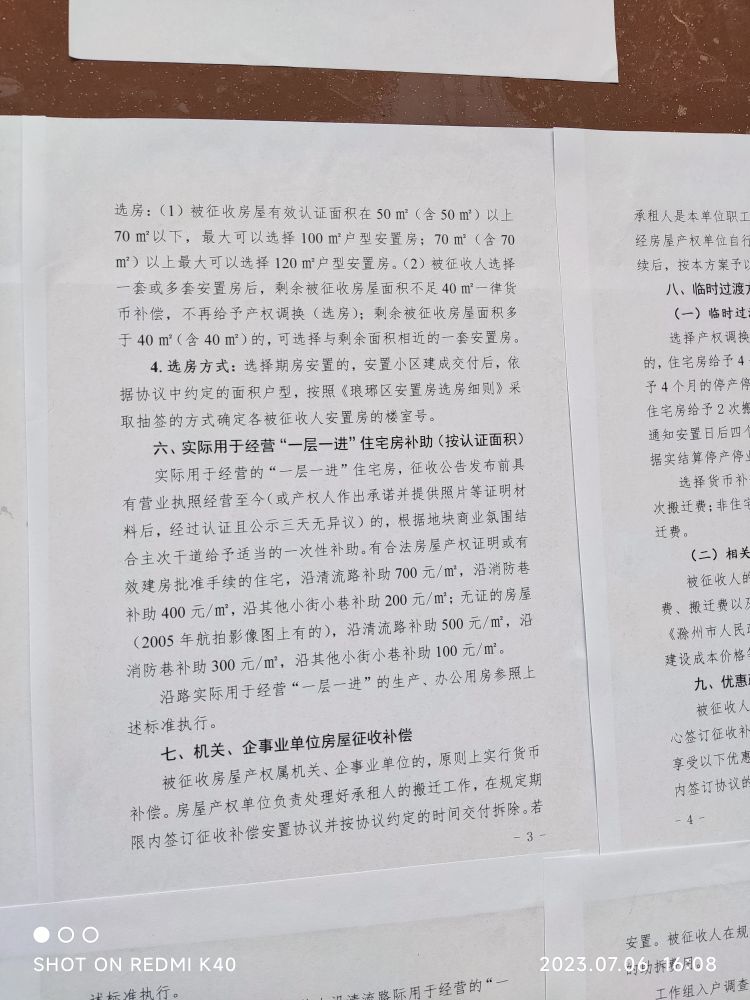 选房：（1）被征收房屋有效认证面积在 50 ㎡（含 50 ㎡）以上
70 ㎡以下，最大可以选择 100 ㎡户型安置房；70 ㎡（含 70
㎡）以上最大可以选择 120 ㎡户型安置房。（2）被征收人选择
一套或多套安置房后，剩余被征收房屋面积不足 40 ㎡一律货
币补偿，不再给予产权调换（选房）；剩余被征收房屋面积多
于 40 ㎡（含 40 ㎡）的，可选择与剩余面积相近的一套安置房。
4. 选房方式：选择期房安置的，安置小区建成交付后，依
据协议中约定的面积户型，按照《琅琊区安置房选房细则》采
取抽签的方式确定各被征收人安置房的楼室号。
六、实际用于经营“一层一进”住宅房补助（按认证面积）
实际用于经营的“一层一进”住宅房，征收公告发布前具
有营业执照经营至今（或产权人作出承诺并提供照片等证明材
料后，经过认证且公示三天无异议）的，根据地块商业氛围结
合主次干道给予适当的一次性补助。有合法房屋产权证明或有
效建房批准手续的住宅，沿清流路补助 700 元/㎡，沿消防巷
补助 400 元/㎡，沿其他小街小巷补助 200 元/㎡；无证的房屋
（2005 年航拍影像图上有的），沿清流路补助 500 元/㎡，沿
消防巷补助 300 元/㎡，沿其他小街小巷补助 100 元/㎡。
沿路实际用于经营“一层一进”的生产、办公用房参照上
述标准执行。
七、机关、企事业单位房屋征收补偿
被征收房屋产权属机关、企事业单位的，原则上实行货币
补偿。房屋产权单位负责处理好承租人的搬迁工作，在规定期
限内签订征收补偿安置协议并按协议约定的时间交付拆除。若
- 3 -
承租人是本单位职工
经房屋产权单位自行
续后，按本方案予以
八、临时过渡方
（一）临时过渡
选择产权调换
的，住宅房给予 4
予 4 个月的停产停
住宅房给予 2 次搬
通知安置日后四个
据实结算停产停业
选择货币补
次搬迁费；非住宅
迁费。
（二）相关
被征收人的
费、搬迁费以及
《滁州市人民政
建设成本价格等
九、优惠政
被征收人
心签订征收补
享受以下优惠
内签订协议的
- 4 -
述标准执行。
沿清流路际用于经营的“一
安置。被征收人在规
的助拆费用。
工作组入户调查
SHOT ON REDMI K40
2023.07.06 16:08